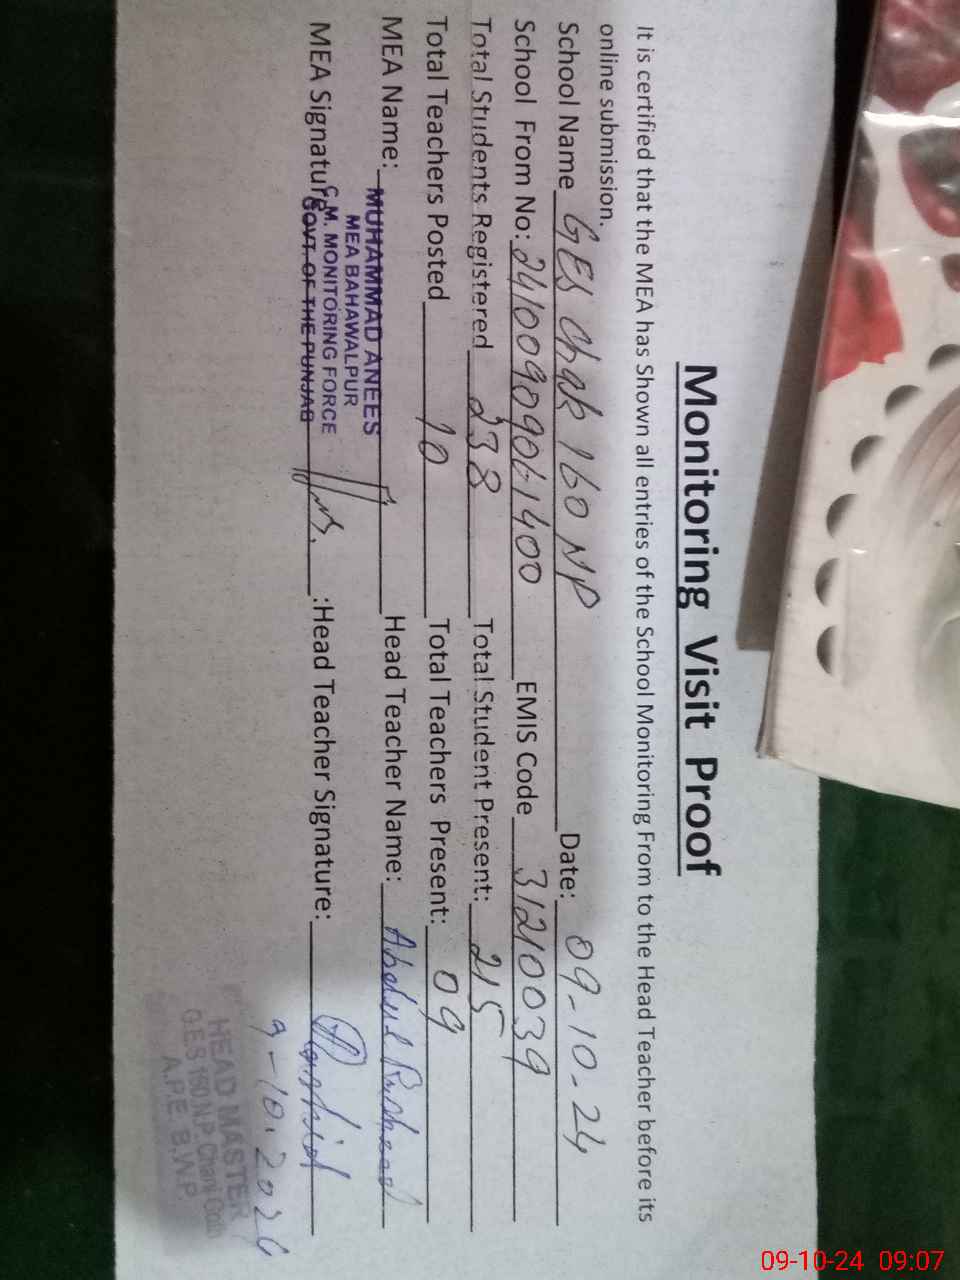 Monitoring Visit Proof
It is certified that the MEA has Shown all entries of the School Monitoring From to the Head Teacher before its
online submission.
School Name GES Chak 160 NP Date: 09-10-24
School From No: 24100909061400 EMIS Code 31210039
Total Students Registered 238 Total Student Present: 215
Total Teachers Posted 10 Total Teachers Present: 09
MEA Name: MUHAMMAD ANEES Head Teacher Name: Abdul Rasheed
MEA BAHAWALPUR
C.M. MONITORING FORCE
GOVT. OF THE PUNJAB
MEA Signature :Head Teacher Signature:
9-10-2024
HEAD MASTER
G.E.S 160 N.P
A.P.E. B.W.P.
09-10-24 09:07